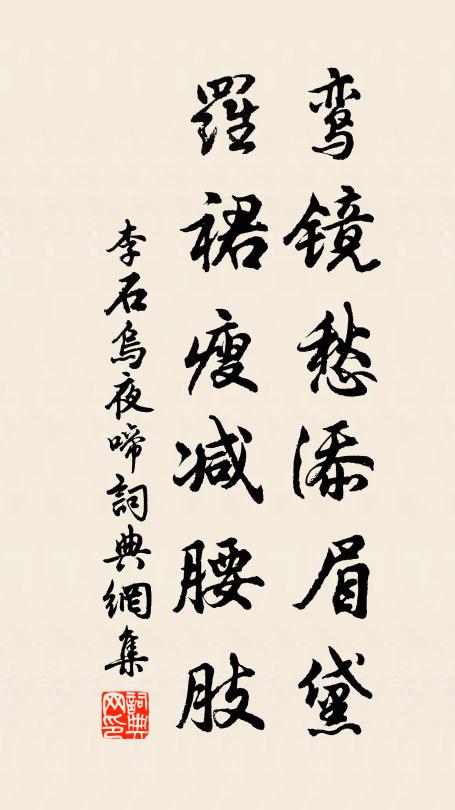 鸾镜愁添眉黛
羅裙瘦减腰肢
李石烏夜啼詞典網集
詞典网印